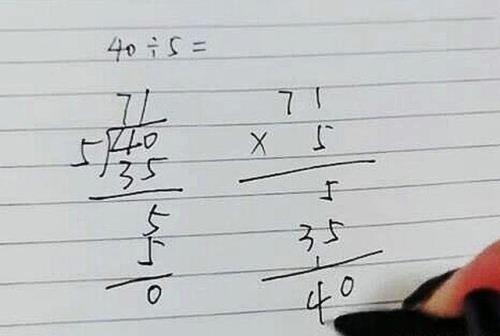 40÷5=
71
5)40
35
5
5
0
71
× 5
5
35
40